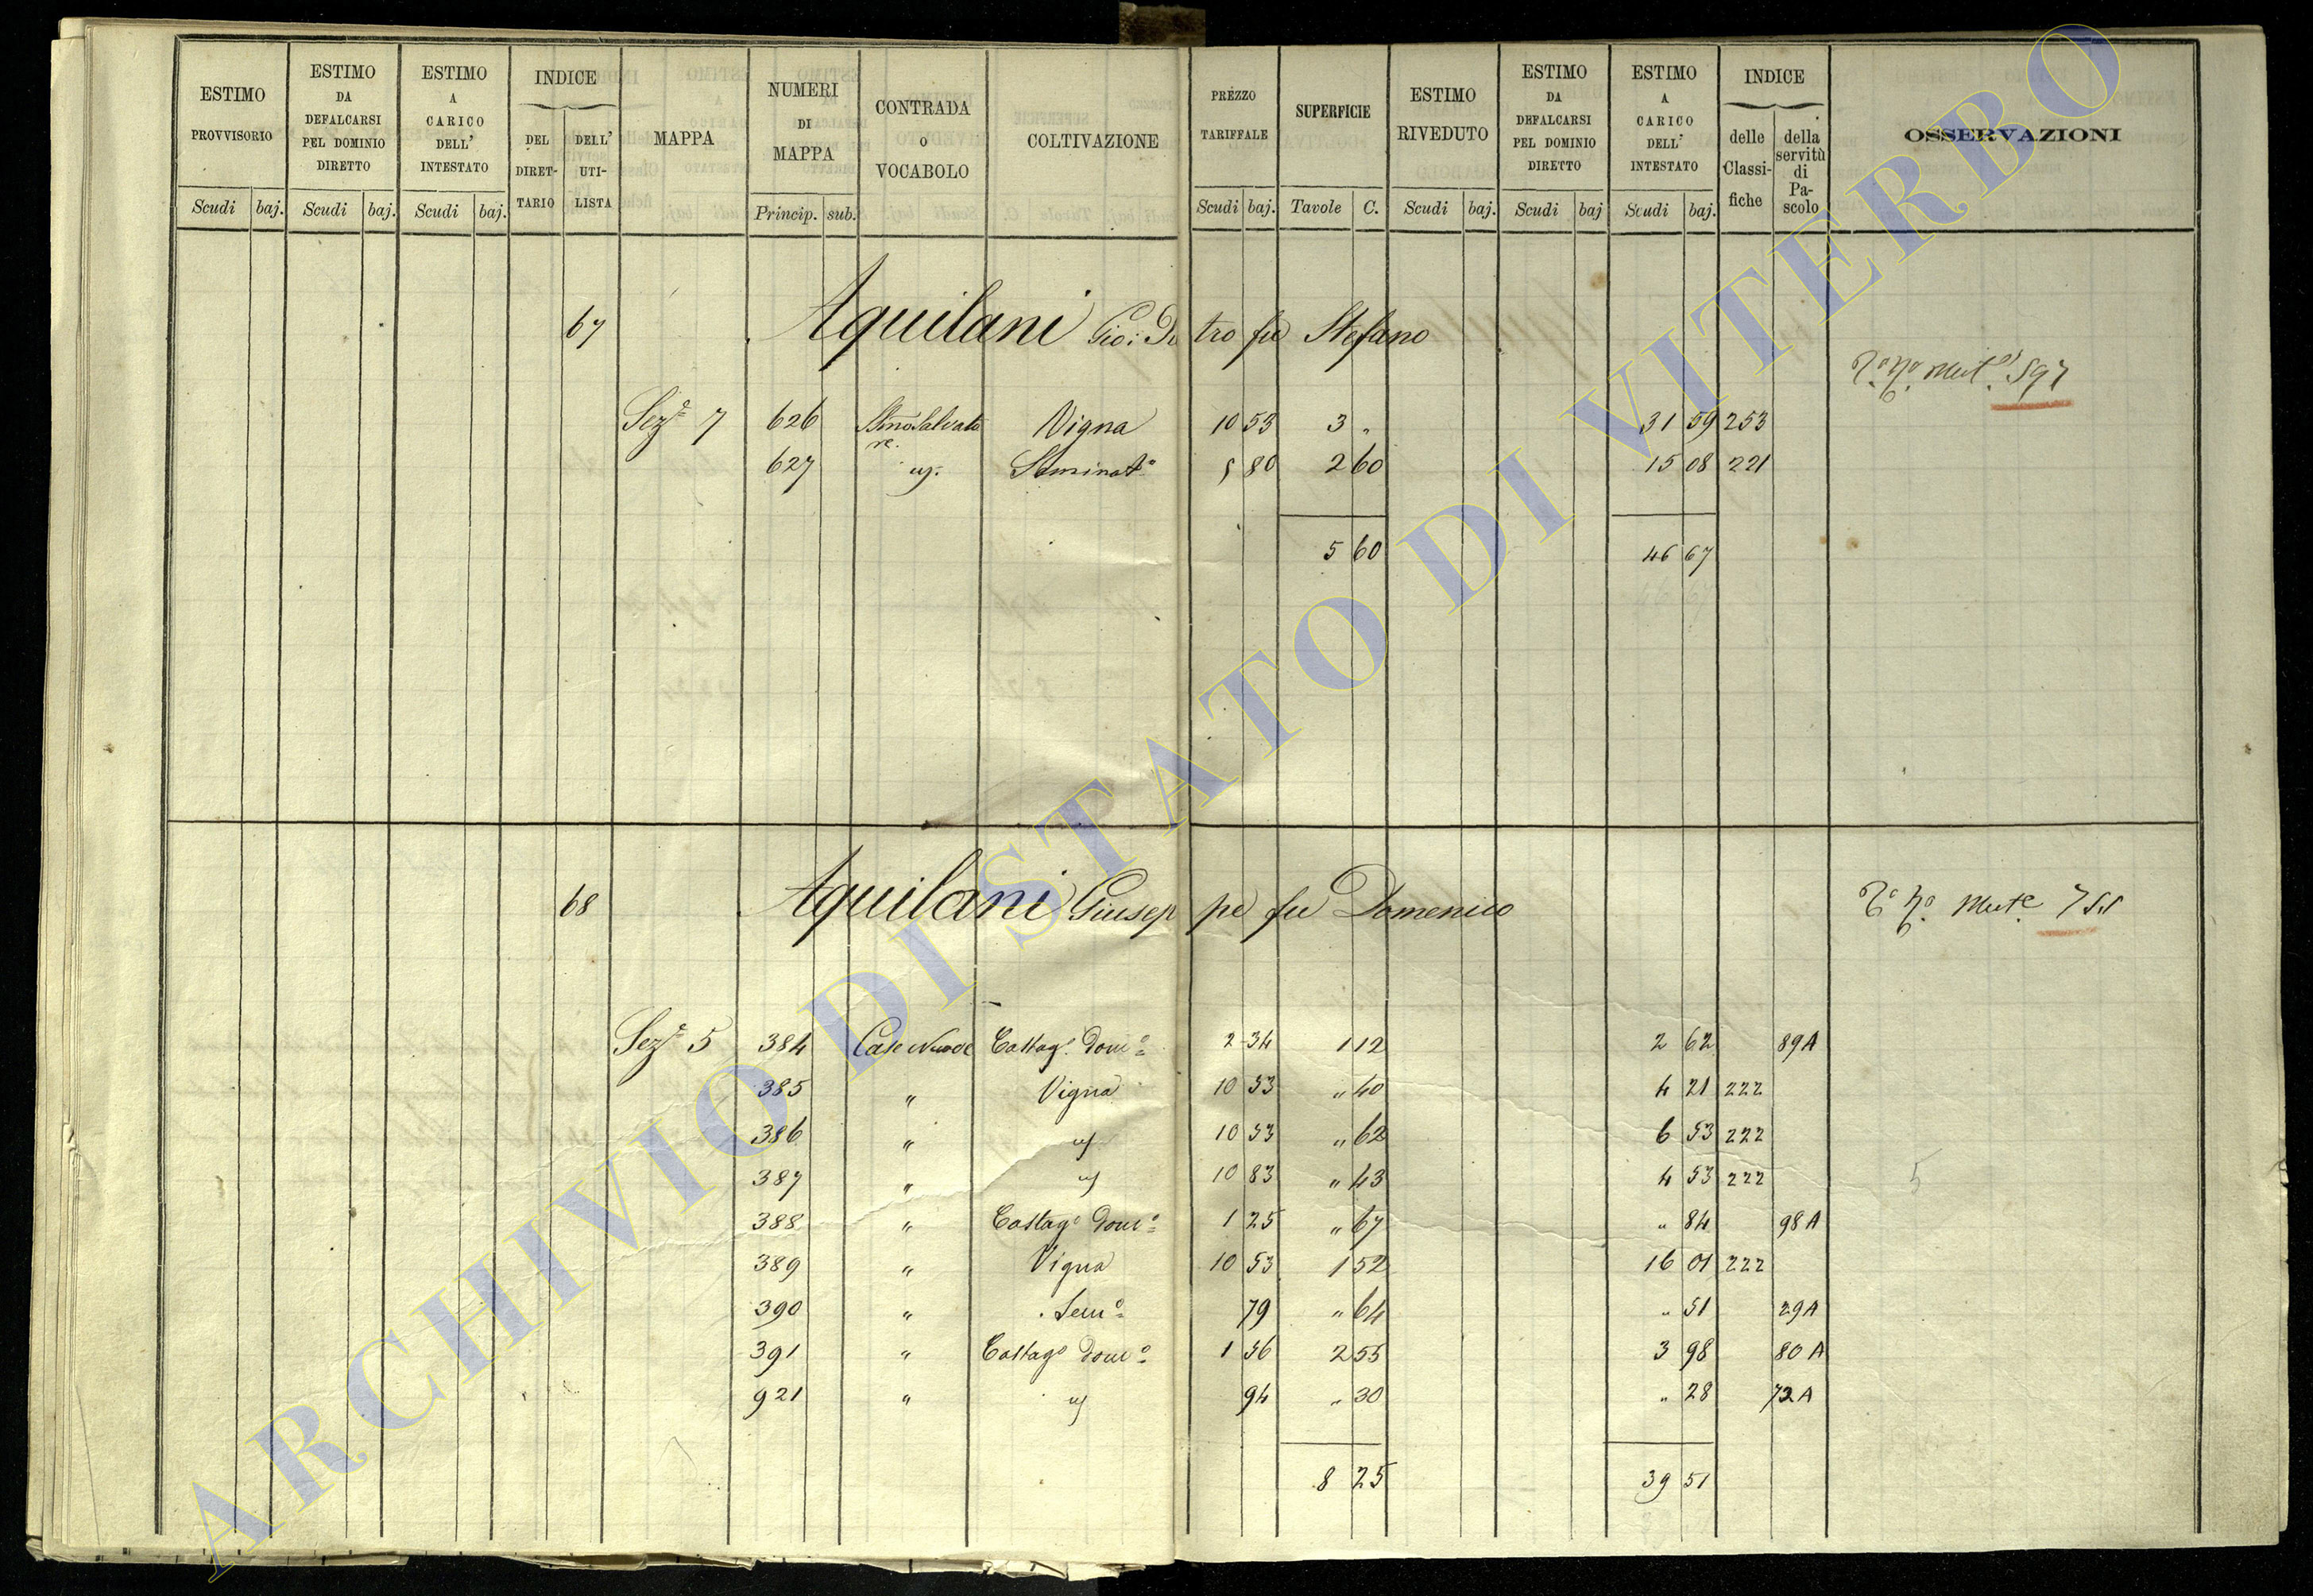 ESTIMO PROVVISORIO
ESTIMO DA DEFALCARSI PEL DOMINIO DIRETTO
ESTIMO A CARICO DELL' INTESTATO
INDICE
DEL DIRETTARIO
DELL' UTILISTA
MAPPA
NUMERI DI MAPPA
CONTRADA o VOCABOLO
COLTIVAZIONE
PREZZO TARIFFALE
SUPERFICIE
ESTIMO RIVEDUTO
ESTIMO DA DEFALCARSI PEL DOMINIO DIRETTO
ESTIMO A CARICO DELL' INTESTATO
INDICE
delle Classifiche
della servitù di Pascolo
OSSERVAZIONI
Scudi baj. Scudi baj. Scudi baj. Princip. sub. Scudi baj. Tavole C. Scudi baj. Scudi baj Scudi baj.
67 Aquilani Gio: Pietro fu Stefano
Sez.e 7 626 Vigna 10 53 3 " 31 59 253
627 Seminat.o 5 80 2 60 15 08 221
5 60 46 67
68 Aquilani Giuseppe fu Domenico
Sez.e 5 384 Case Nuove Castag.o Dom.o 2 34 1 12 2 62 89A
385 " Vigna 10 53 " 40 4 21 222
386 " 10 53 " 62 6 53 222
387 " 10 83 " 43 4 53 222
388 " Castag.o Dom.o 1 25 " 67 " 84 98A
389 " Vigna 10 53 1 52 16 01 222
390 " Sem.o 79 " 64 " 51 29A
391 " Castag.o Dom.o 1 56 2 55 3 98 80A
921 " 94 " 30 " 28 72A
8 25 39 51
5
ARCHIVIO DI STATO DI VITERBO